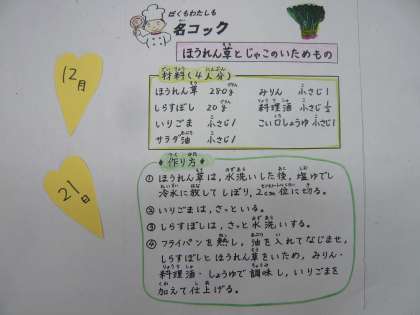 ぼくもわたしも
名コック
ほうれん草とじゃこのいためもの
12月
21日
材料(4人分)
ほうれん草 280g みりん 小さじ1
しらすぼし 20g 料理酒 小さじ½
いりごま 小さじ1 こい口しょうゆ 小さじ1
サラダ油 小さじ1
作り方
① ほうれん草は,水洗いした後,塩ゆでし
冷水に放してしぼり,2cm位に切る。
② いりごまは,さっといる。
③ しらすぼしは,さっと水洗いする。
④ フライパンを熱し,油を入れてなじませ,
しらすぼしとほうれん草をいため,みりん・
料理酒・しょうゆで調味し,いりごまを
加えて仕上げる。